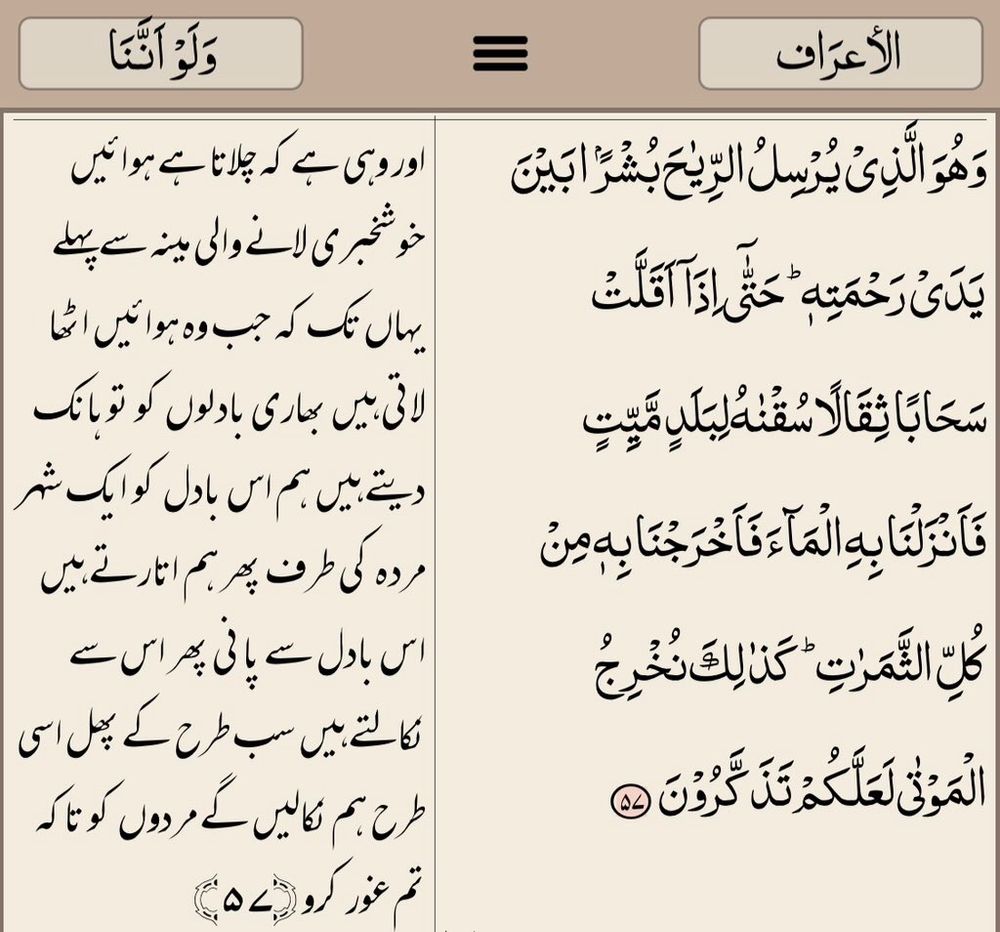 الأعرَاف
وَلَوْ اَنَّنَا
وَهُوَ الَّذِىْ يُرْسِلُ الرِّيٰحَ بُشْرًۢا بَيْنَ
يَدَىْ رَحْمَتِهٖ ؕ حَتّٰۤى اِذَاۤ اَقَلَّتْ
سَحَابًا ثِقَالًا سُقْنٰهُ لِبَلَدٍ مَّيِّتٍ
فَاَنْزَلْنَا بِهِ الْمَآءَ فَاَخْرَجْنَا بِهٖ مِنْ
كُلِّ الثَّمَرٰتِ ؕ كَذٰلِكَ نُخْرِجُ
الْمَوْتٰى لَعَلَّكُمْ تَذَكَّرُوْنَ ۵۷
اور وہی ہے کہ چلاتا ہے ہوائیں
خوشخبری لانے والی مینہ سے پہلے
یہاں تک کہ جب وہ ہوائیں اٹھا
لاتی ہیں بھاری بادلوں کو تو ہانک
دیتے ہیں ہم اس بادل کو ایک شہر
مردہ کی طرف پھر ہم اتارتے ہیں
اس بادل سے پانی پھر اس سے
نکالتے ہیں سب طرح کے پھل اسی
طرح ہم نکالیں گے مردوں کو تاکہ
تم غور کرو ﴿۵۷﴾